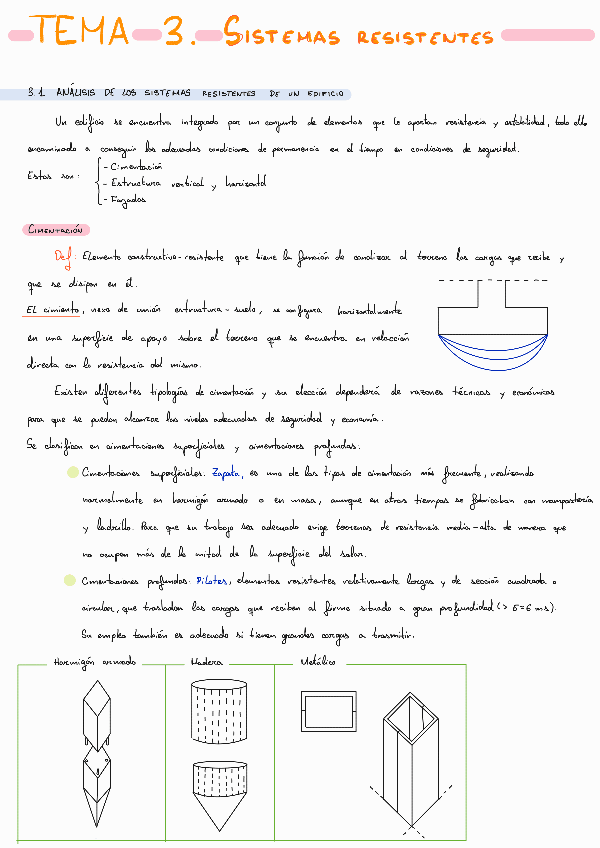 TEMA 3. SISTEMAS RESISTENTES
3.1 ANÁLISIS DE LOS SISTEMAS RESISTENTES DE UN EDIFICIO
Un edificio se encuentra integrado por un conjunto de elementos que le aportan resistencia y estabilidad, todo ello
encaminado a conseguir las adecuadas condiciones de permanencia en el tiempo en condiciones de seguridad.
Estos son:
- Cimentación
- Estructura vertical y horizontal
- Fachadas
CIMENTACIÓN
Def: Elemento constructivo-resistente que tiene la función de canalizar al terreno las cargas que recibe y
que se disipan en él.
EL cimiento, nexo de unión estructura-suelo, se configura horizontalmente
en una superficie de apoyo sobre el terreno que se encuentra en relación
directa con la resistencia del mismo.
Existen diferentes tipologías de cimentación y su elección dependerá de razones técnicas y económicas
para que se puedan alcanzar los niveles adecuados de seguridad y economía.
Se clasifican en cimentaciones superficiales y cimentaciones profundas.
Cimentaciones superficiales. Zapata, es uno de los tipos de cimentación más frecuente, realizando
normalmente en hormigón armado o en masa, aunque en otros tiempos se fabricaban con mampostería
y ladrillo. Para que su trabajo sea adecuado exige terrenos de resistencia media-alta de manera que
no ocupen más de la mitad de la superficie del solar.
Cimentaciones profundas. Pilotes, elementos resistentes relativamente largos y de sección cuadrada o
circular, que trasladan las cargas que reciben al firme situado a gran profundidad (> 5=6 ms).
Su empleo también es adecuado si tienen grandes cargas a trasmitir.
Hormigón armado Madera Metálico